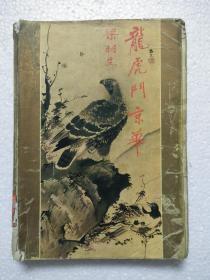 龍虎鬥京華
梁羽生